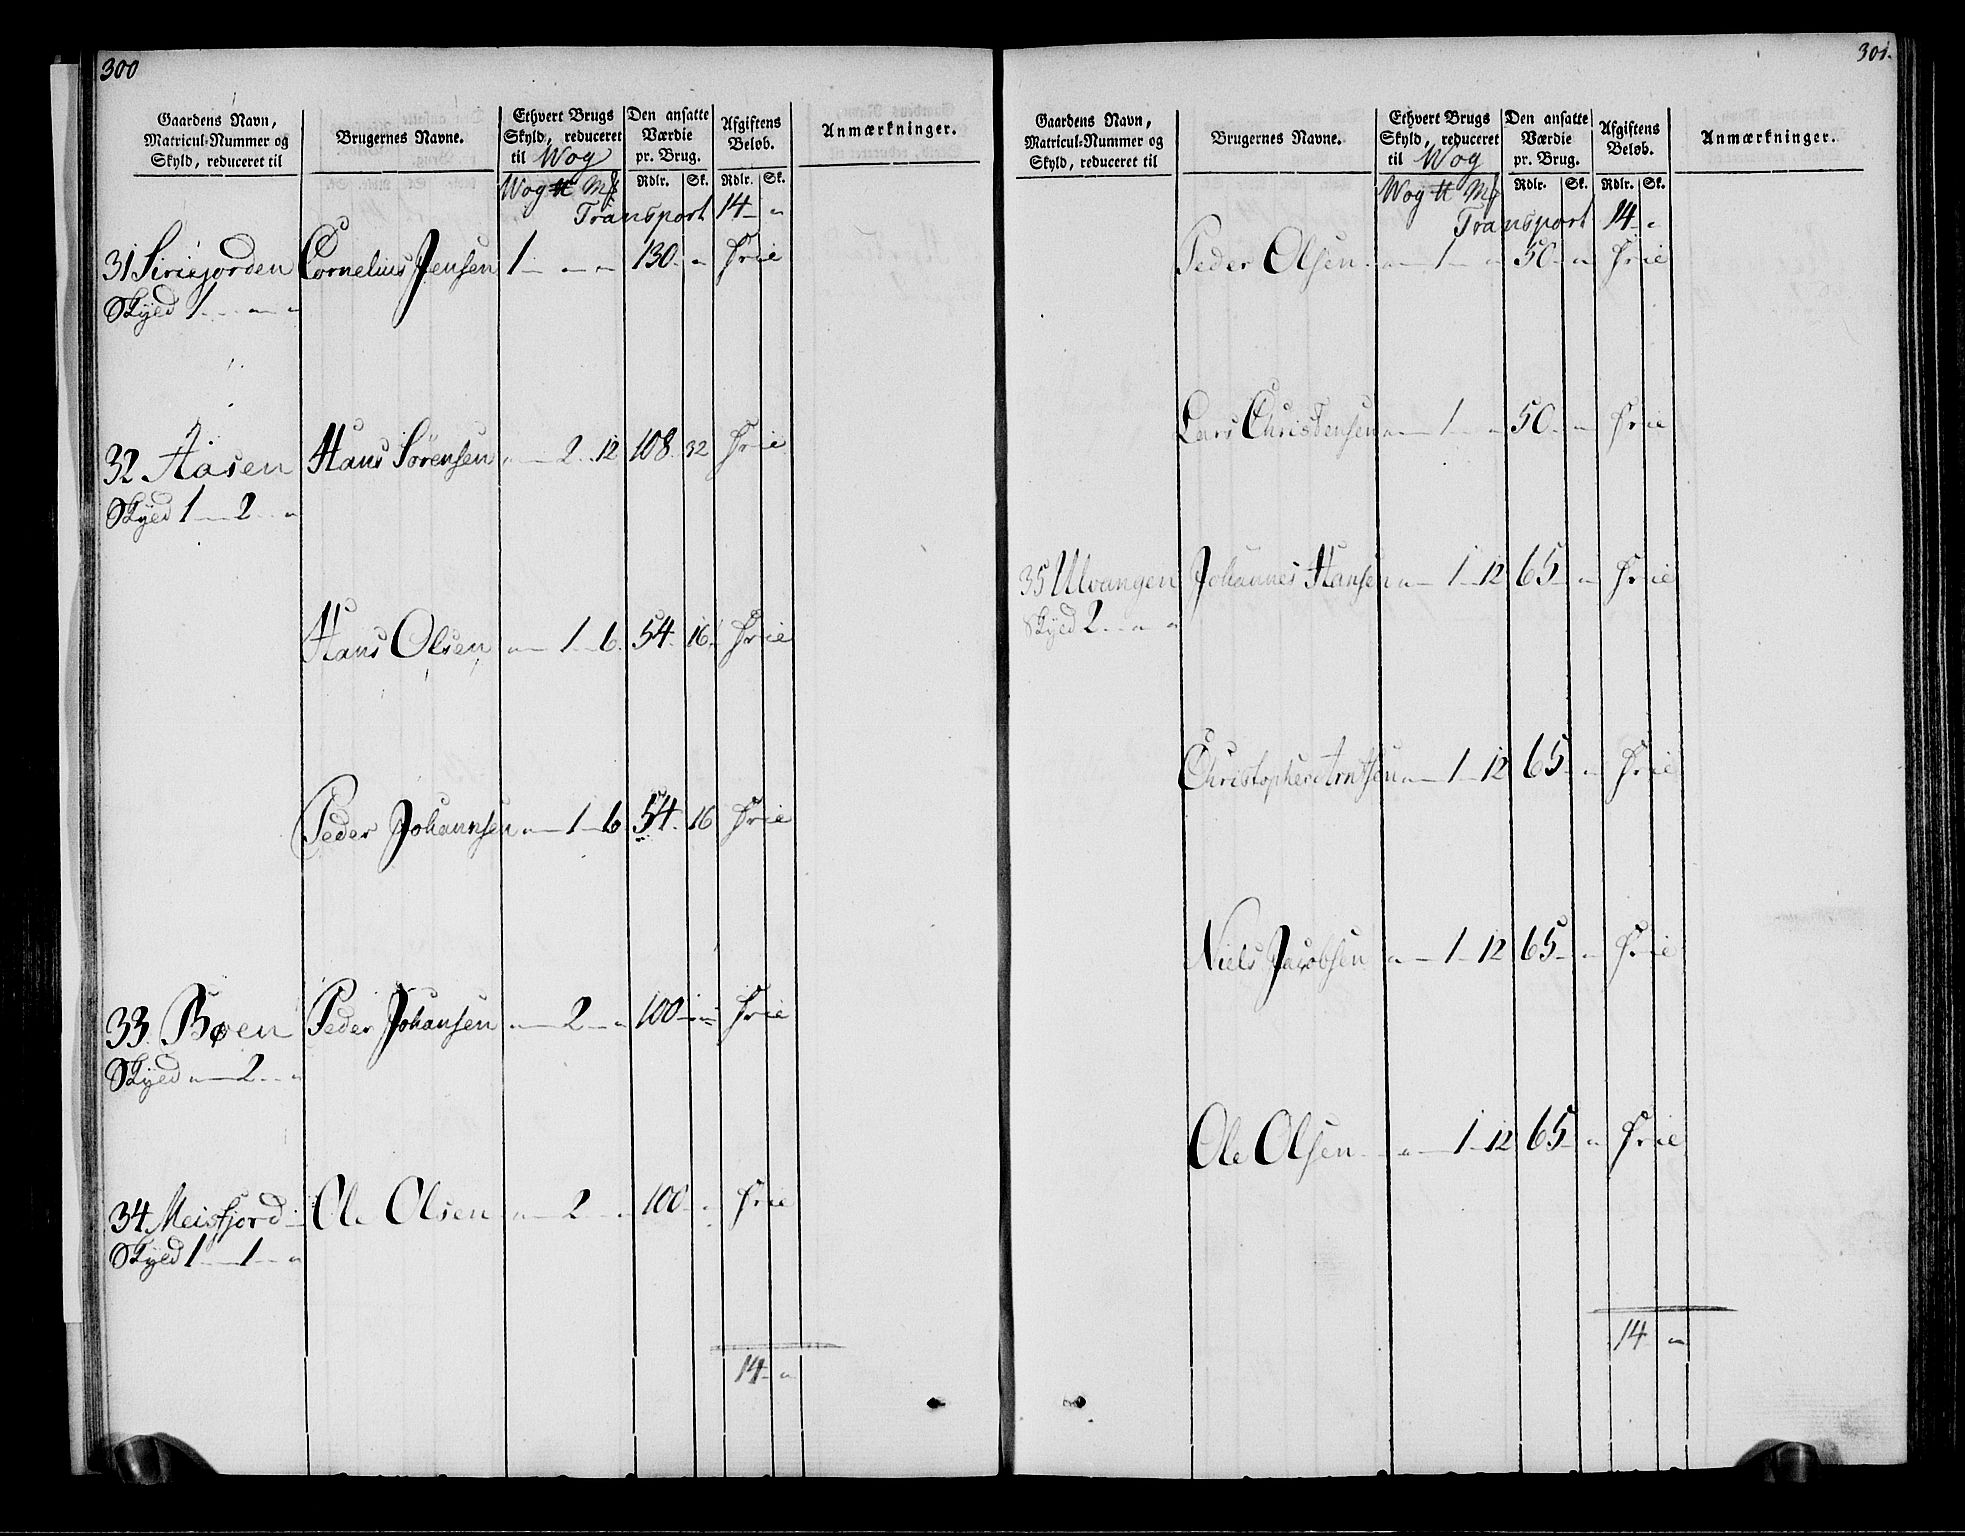 300
Gaardens Navn, Matricul-Nummer og Skyld, reduceret til
Brugernes Navne.
Ethvert Brugs Skyld, reduceret til Wog
Den ansatte Værdie pr. Brug.
Afgiftens Beløb.
Anmærkninger.
Wog ℔ Mk Rdlr. Sk. Rdlr. Sk.
Transport 14 - "
31 Siriejorden Cornelius Jensen 1 - " - " 130 - " Frie
Skyld 1 - " - "
32 Aasen Hans Sörensen " - 2 - 12 108 32 Frie
Skyld 1 - 2 - "
Hans Olsen " - 1 - 6 54 - 16 Frie
Peder Johannsen " - 1 - 6 54 - 16 Frie
33 Bøen Peder Johansen " - 2 - " 100 - " Frie
Skyld " - 2 - "
34 Meisfjord Ole Olsen " - 2 - " 100 - " Frie
Skyld 1 - 1 - "
14 - "
301.
Gaardens Navn, Matricul-Nummer og Skyld, reduceret til
Brugernes Navne.
Ethvert Brugs Skyld, reduceret til Wog
Den ansatte Værdie pr. Brug.
Afgiftens Beløb.
Anmærkninger.
Wog ℔ Mk Rdlr. Sk. Rdlr. Sk.
Transport 14 - "
Peder Olsen " - 1 - " 50 - " Frie
Lars Christensen " - 1 - " 50 - " Frie
35 Ulvangen Johannes Hansen " - 1 - 12 65 - " Frie
Skyld 2 - " - "
Christopher Arntsen " - 1 - 12 65 - " Frie
Niels Jacobsen " - 1 - 12 65 - " Frie
Ole Olsen " - 1 - 12 65 - " Frie
14 "